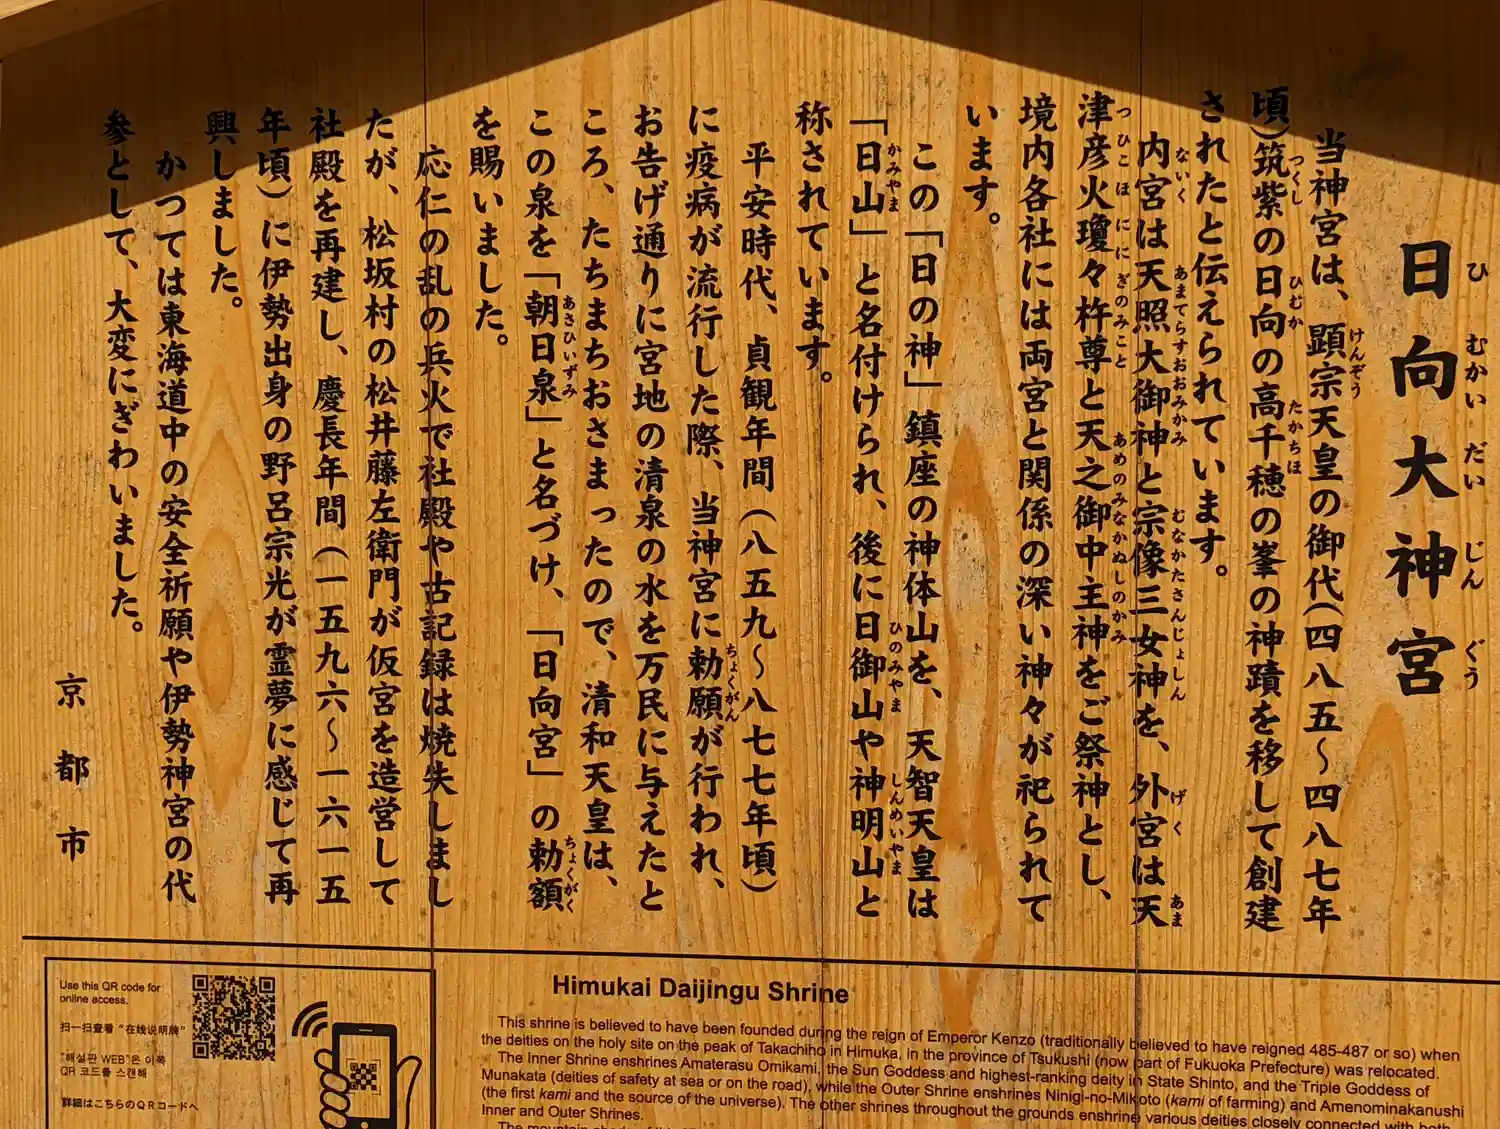 日向大神宮
ひ むかい だい じん ぐう
当神宮は、顕宗天皇の御代(四八五〜四八七年
けんぞう
頃)筑紫の日向の高千穂の峯の神蹟を移して創建
つくし ひむか たかちほ
されたと伝えられています。
内宮は天照大御神と宗像三女神を、外宮は天
ないく あまてらすおおみかみ むなかたさんじょしん げく あま
津彦火瓊々杵尊と天之御中主神をご祭神とし、
つひこほににぎのみこと あめのみなかぬしのかみ
境内各社には両宮と関係の深い神々が祀られて
います。
この「日の神」鎮座の神体山を、天智天皇は
「日山」と名付けられ、後に日御山や神明山と
かみやま ひのみやま しんめいやま
称されています。
平安時代、貞観年間(八五九〜八七七年頃)
に疫病が流行した際、当神宮に勅願が行われ、
ちょくがん
お告げ通りに宮地の清泉の水を万民に与えたと
ころ、たちまちおさまったので、清和天皇は、
この泉を「朝日泉」と名づけ、「日向宮」の勅額
あさひいずみ ちょくがく
を賜いました。
応仁の乱の兵火で社殿や古記録は焼失しまし
たが、松坂村の松井藤左衛門が仮宮を造営して
社殿を再建し、慶長年間(一五九六〜一六一五
年頃)に伊勢出身の野呂宗光が霊夢に感じて再
興しました。
かつては東海道中の安全祈願や伊勢神宮の代
参として、大変にぎわいました。
京都市
Use this QR code for
online access.
扫一扫查看 “在线说明牌”
"해설판 WEB"은 이쪽
QR 코드를 스캔해
詳細はこちらのQRコードへ
Himukai Daijingu Shrine
This shrine is believed to have been founded during the reign of Emperor Kenzo (traditionally believed to have reigned 485-487 or so) when
the deities on the holy site on the peak of Takachiho in Himuka, in the province of Tsukushi (now part of Fukuoka Prefecture) was relocated.
The Inner Shrine enshrines Amaterasu Omikami, the Sun Goddess and highest-ranking deity in State Shinto, and the Triple Goddess of
Munakata (deities of safety at sea or on the road), while the Outer Shrine enshrines Ninigi-no-Mikoto (kami of farming) and Amenominakanushi
(the first kami and the source of the universe). The other shrines throughout the grounds enshrine various deities closely connected with both
Inner and Outer Shrines.